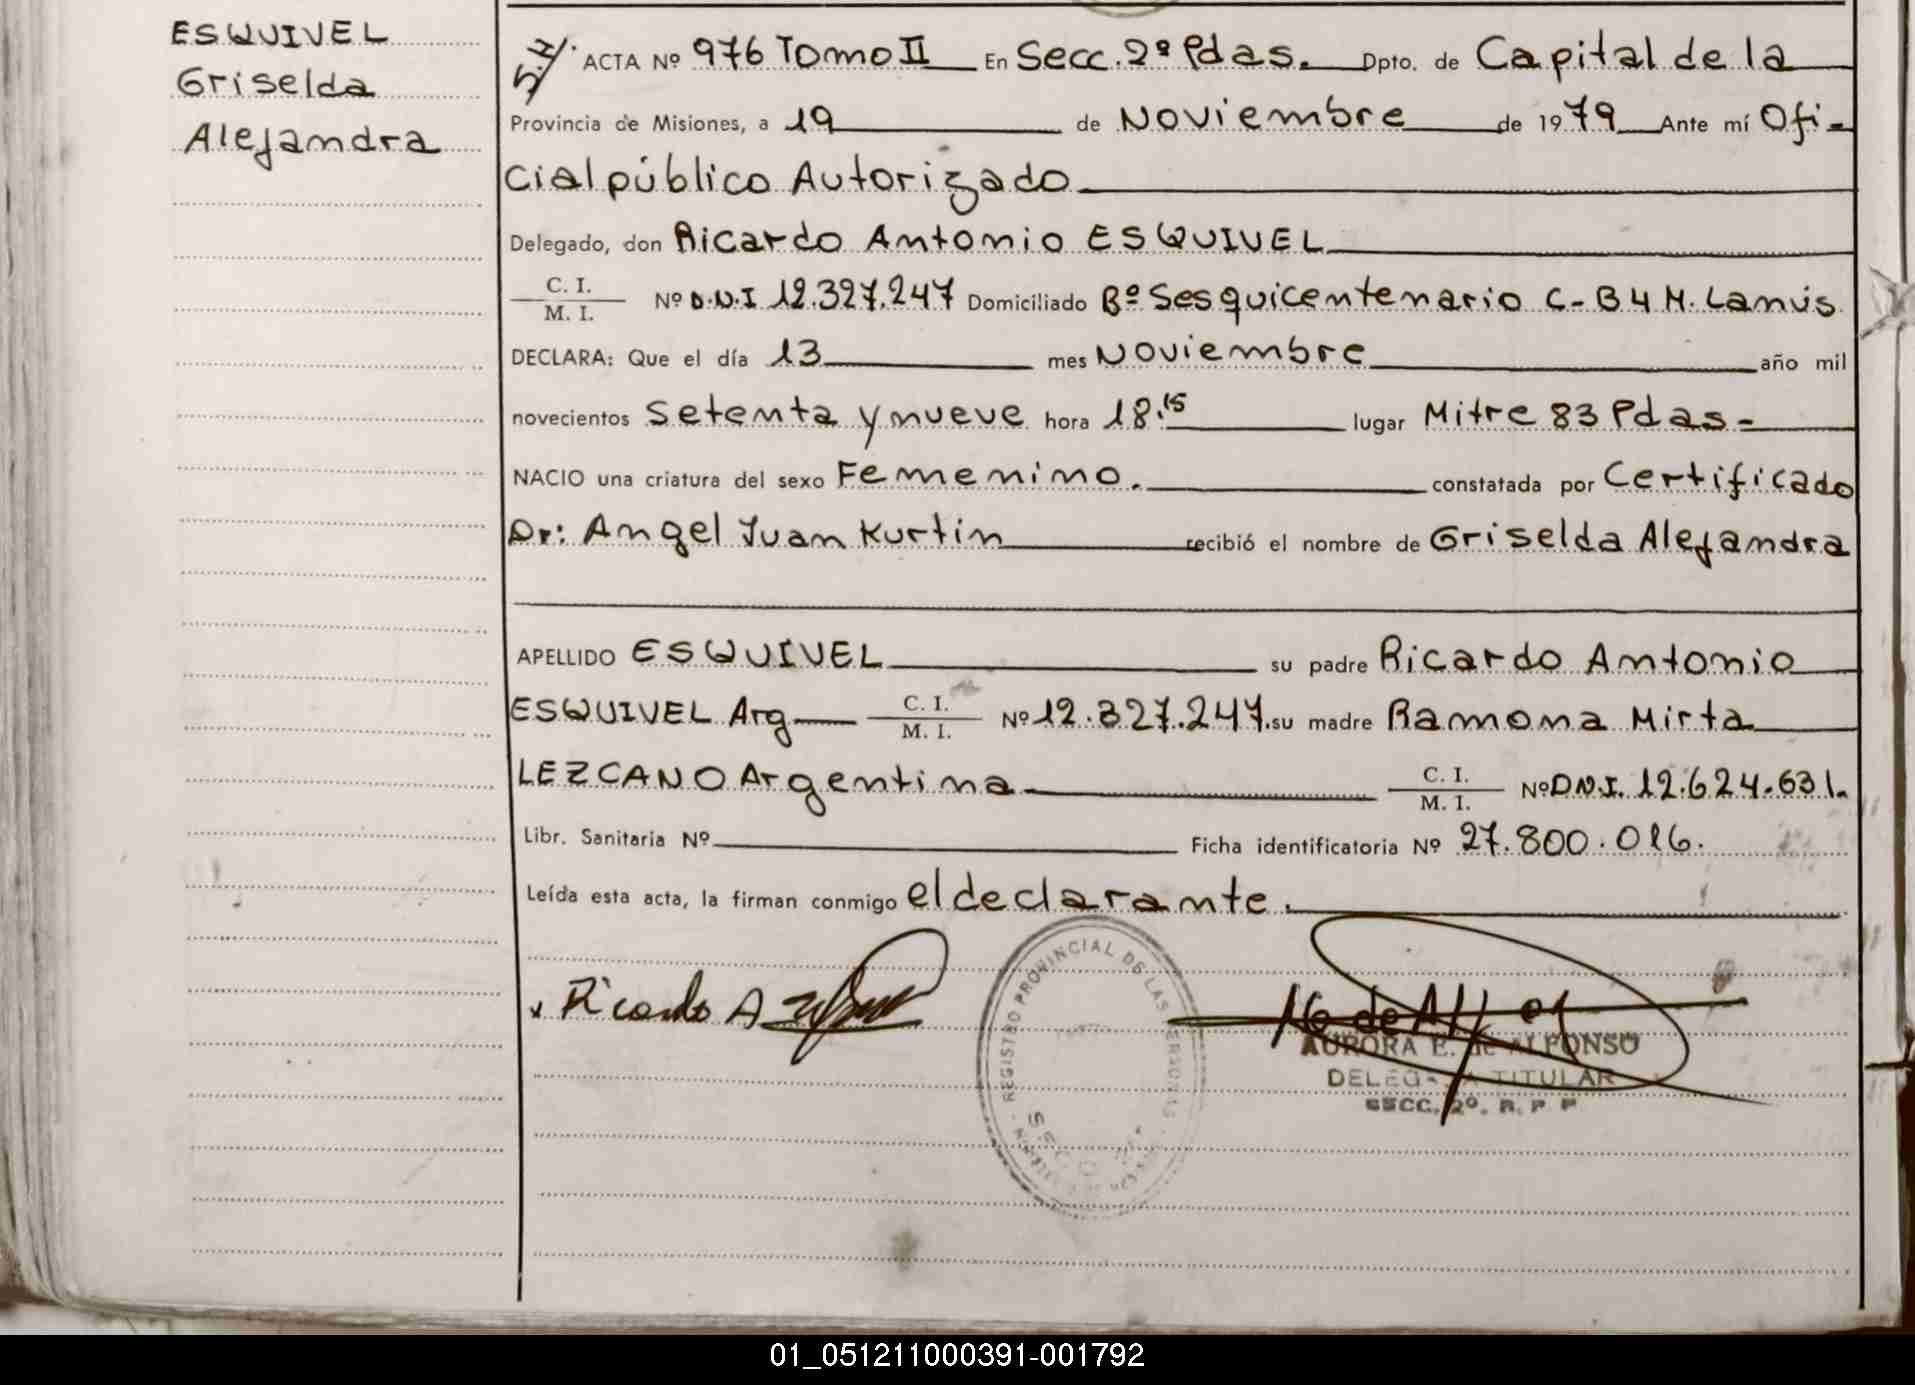 ESQUIVEL
Griselda
Alejandra
ACTA Nº 976 Tomo II En Secc. 2º Pdas. Dpto. de Capital de la
Provincia de Misiones, a 19 de Noviembre de 1979 Ante mí Ofi-
cial público Autorizado
Delegado, don Ricardo Antonio ESQUIVEL
C. I.
M. I. Nº D.N.I 12.327.247 Domiciliado Bº Sesquicentenario C-B4 M. Lanús
DECLARA: Que el día 13 mes Noviembre año mil
novecientos setenta y nueve hora 18.15 lugar Mitre 83 Pdas-
NACIO una criatura del sexo Femenino. constatada por Certificado
Dr: Angel Juan Kurtin recibió el nombre de Griselda Alejandra
APELLIDO ESQUIVEL su padre Ricardo Antonio
ESQUIVEL Arg C. I.
M. I. Nº 12.327.247. su madre Ramona Mirta
LEZCANO Argentina C. I.
M. I. Nº D.N.I. 12.624.631.
Libr. Sanitaria Nº Ficha identificatoria Nº 27.800.016.
Leída esta acta, la firman conmigo el declarante.
Ricardo A
REGISTRO PROVINCIAL DE LAS PERSONAS
AURORA E. de ALFONSO
DELEGADA TITULAR
SECC. 2º. R. P. P
01_051211000391-001792